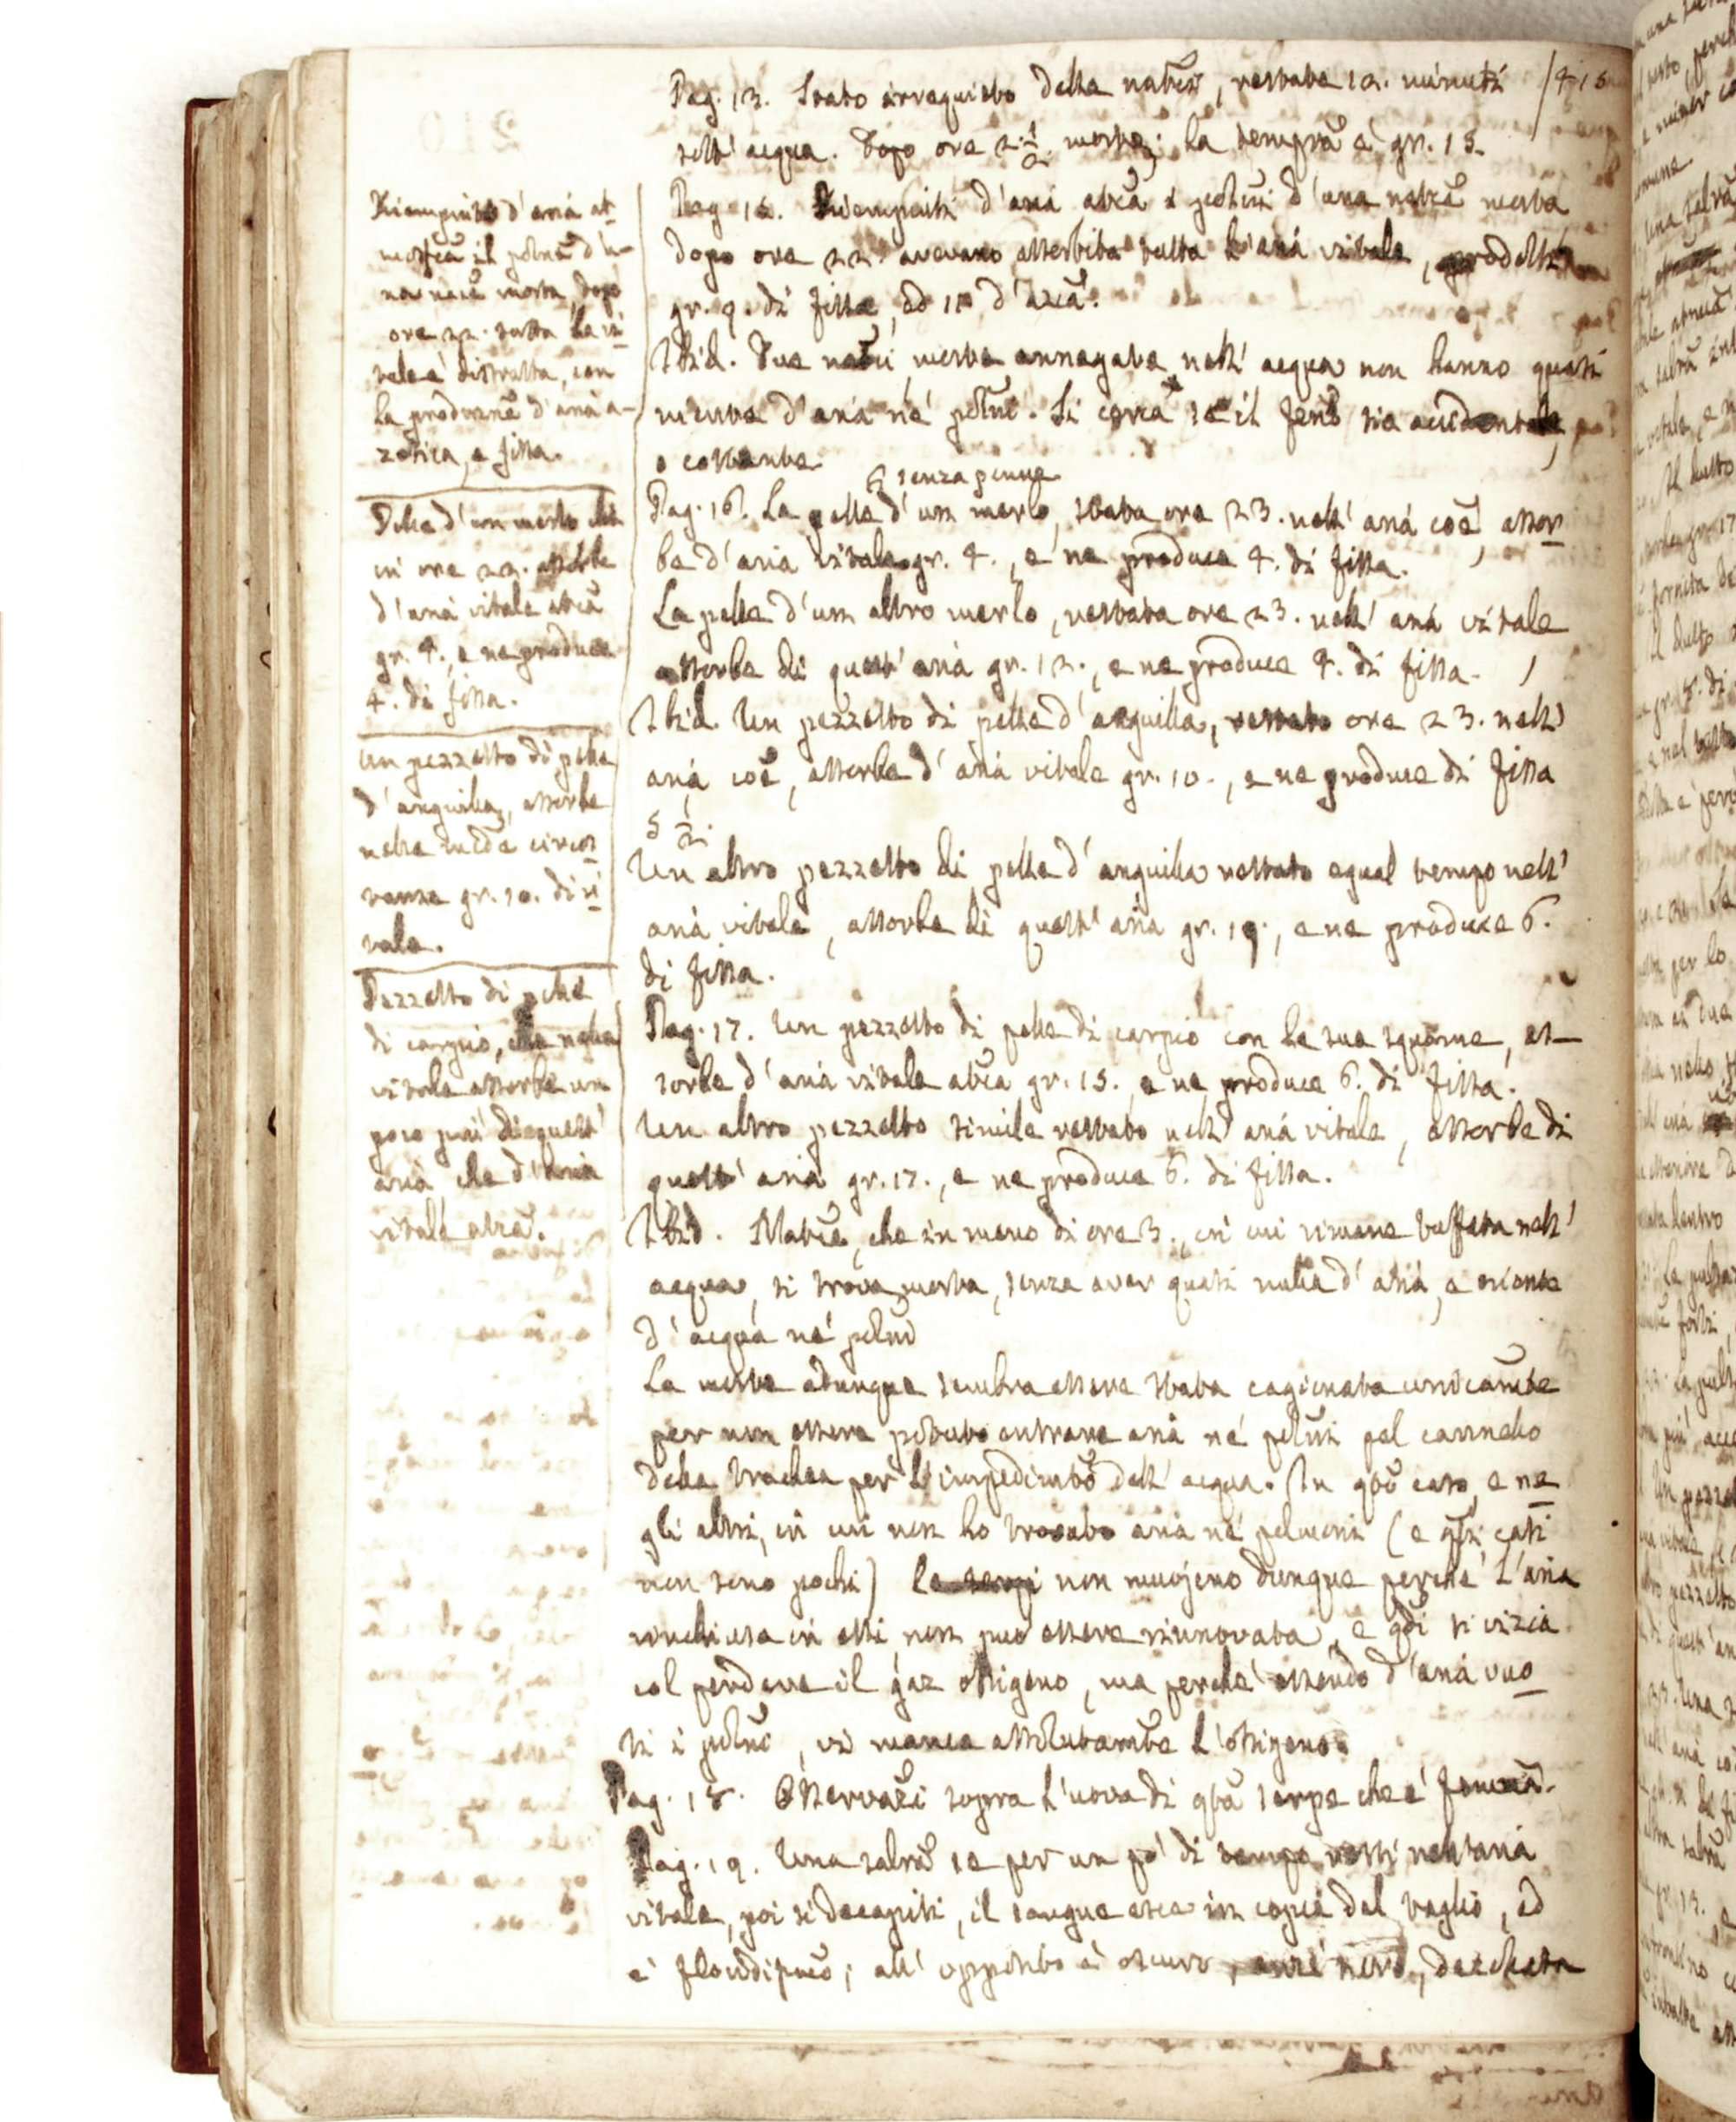 Pag. 13. Stato irrequieto della natrice, restata 12. minuti
sott' acqua. Dopo ore 2 1/2 morta; la tempra è gr. 15.
Pag. 14. Riempiuti d'aria atca i polmi d'una natce morta
dopo ore 22. avevano assorbita tutta l'aria vitale, prodotti
gr. 9. di fissa, ed 11 d'azca.
Ibid. Due natci morte annegate nell' acqua non hanno quasi
niente d'aria ne' polmi. Si cerca se il fenō sia accidentale,
o costante.
senza penne
Pag. 16. La pelle d'un merlo, stata ore 23. nell' aria coē, assor
be d'aria vitale gr. 4., e ne produce 4. di fissa.
La pelle d'un altro merlo, restata ore 23. nell' aria vitale
assorbe di quest' aria gr. 12., e ne produce 4. di fissa.
Ibid. Un pezzetto di pelle d'anguilla, restato ore 23. nell'
aria coē, assorbe d'aria vitale gr. 10., e ne produce di fissa
5 1/2.
Un altro pezzetto di pelle d'anguilla restato egual tempo nell'
aria vitale, assorbe di quest' aria gr. 19., e ne produce 6.
di fissa.
Pag. 17. Un pezzetto di pelle di carpio con le sue squame, as-
sorbe d'aria vitale atca gr. 15. e ne produce 6. di fissa.
Un altro pezzetto simile restato nell' aria vitale, assorbe di
quest' aria gr. 17., e ne produce 6. di fissa.
Ibid. Natce, che in meno di ore 3., in cui rimane tuffata nell'
acqua, si trova morta, senza aver quasi nulla d'aria, e niente
d'acqua ne' polmi
La morte adunque sembra essere stata cagionata unicamte
per non essere potuto entrare aria ne' polmi pel cannello
della trachea per l'impedimto dell' acqua. In qto caso, e ne
gli altri, in cui non ho trovato aria ne' polmoni (e qsti casi
non sono pochi) le serpi non muojono dunque perchè l'aria
rinchiusa in essi non può essere rinnovata, e qdi si vizia
col perdere il gaz ossigeno, ma perchè essendo d'aria vuo
ti i polmi, vi manca assolutamte l'ossigeno.
Pag. 18. Osservazi sopra l'uova di qta serpe che è femma.
Pag. 19. Una salrā se per un pò di tempo resti nell'aria
vitale, poi si decapiti, il sangue esce in copia dal taglio, ed
è floridissimo; all' opposto è oscuro, anzi nero, se è stata
Riempiuto d'aria at
mosfca il polmē d'u-
na natce morta, dopo
ore 22. tutta la vi
tale è distrutta, con
la produzne d'aria a-
zotica, e fissa.
Pelle d'un merlo che
in ore 23. assorbe
d'aria vitale atca
gr. 4., e ne produce
4. di fissa.
Un pezzetto di pelle
d'anguilla, assorbe
nelle medē circos
tanze gr. 10. di vi
tale.
Pezzetto di pelle
di carpio, che nella
vitale assorbe un
poco più di quest'
aria, che d'aria
vitale atca.